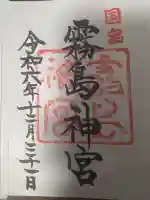 国宝
霧島神宮
令和六年十二月三十一日